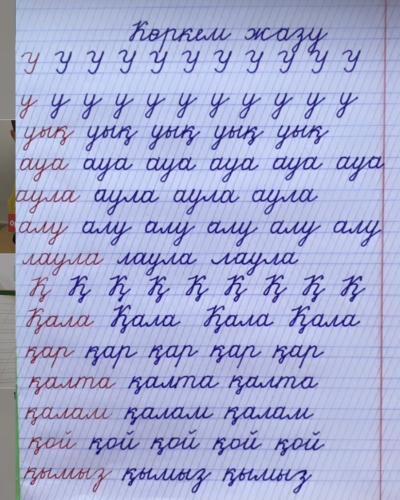 Көркем жазу
У У У У У У У У У У У
у у у у у у у у у у у
уық уық уық уық уық
ауа ауа ауа ауа ауа ауа
аула аула аула аула
алу алу алу алу алу алу
лаула лаула лаула
Қ Қ Қ Қ Қ Қ Қ Қ Қ
Қала Қала Қала Қала
қар қар қар қар қар
қалта қалта қалта
қалам қалам қалам
қой қой қой қой қой
қымыз қымыз қымыз